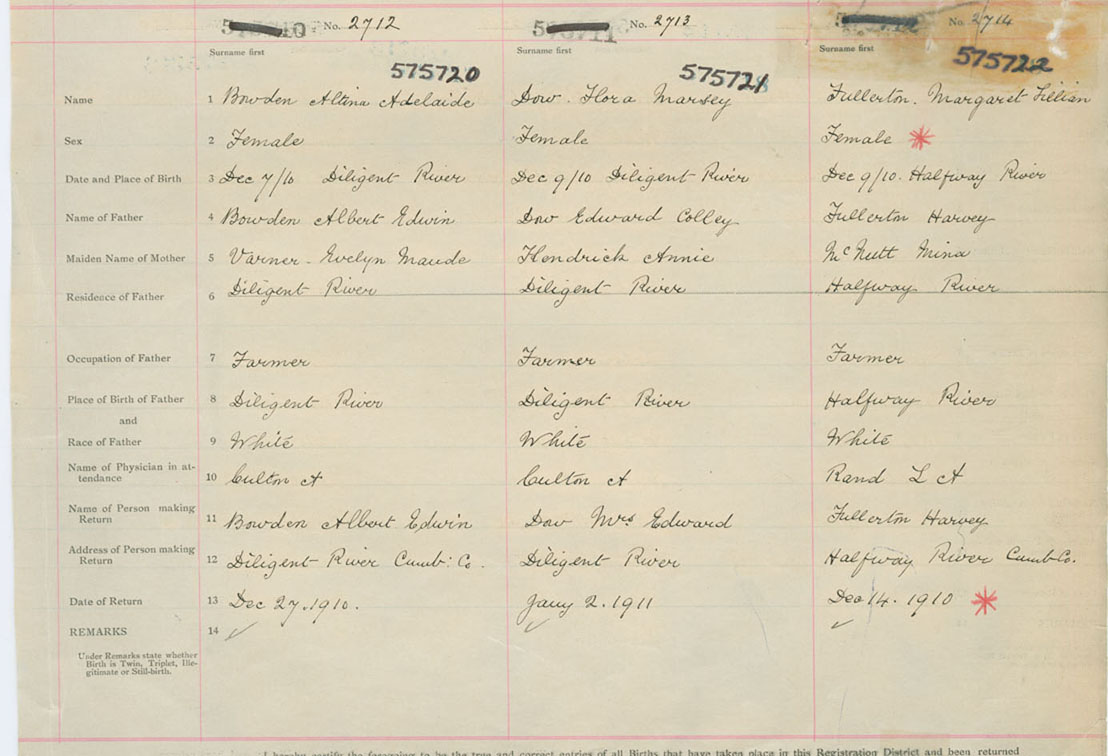 No. 2712 No. 2713 No. 2714
Surname first Surname first Surname first
575720 575721 575722
Name 1 Bowden Altina Adelaide Dow. Flora Marsey Fullerton. Margaret Lillian
Sex 2 Female Female Female *
Date and Place of Birth 3 Dec 7/10 Diligent River Dec 9/10 Diligent River Dec 9/10. Halfway River
Name of Father 4 Bowden Albert Edwin Dow Edward Colley Fullerton Harvey
Maiden Name of Mother 5 Varner - Evelyn Maude Kendrick Annie McNutt Mina
Residence of Father 6 Diligent River Diligent River Halfway River
Occupation of Father 7 Farmer Farmer Farmer
Place of Birth of Father 8 Diligent River Diligent River Halfway River
and
Race of Father 9 White White White
Name of Physician in at-
tendance 10 Culton A Culton A Rand L A
Name of Person making
Return 11 Bowden Albert Edwin Dow Mrs Edward Fullerton Harvey
Address of Person making
Return 12 Diligent River Cumb: Co. Diligent River Halfway River Cumb Co.
Date of Return 13 Dec 27. 1910. Jany 2. 1911 Dec 14. 1910 *
REMARKS 14
Under Remarks state whether
Birth is Twin, Triplet, Ille-
gitimate or Still-birth.
I hereby certify the foregoing to be the true and correct entries of all Births that have taken place in this Registration District and been returned